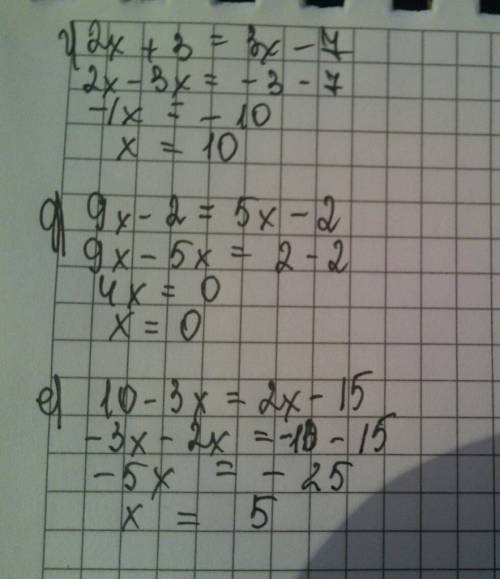 г) 2x + 3 = 3x - 7
2x - 3x = -3 - 7
-1x = -10
x = 10
д) 9x - 2 = 5x - 2
9x - 5x = 2 - 2
4x = 0
x = 0
е) 10 - 3x = 2x - 15
-3x - 2x = -10 - 15
-5x = -25
x = 5